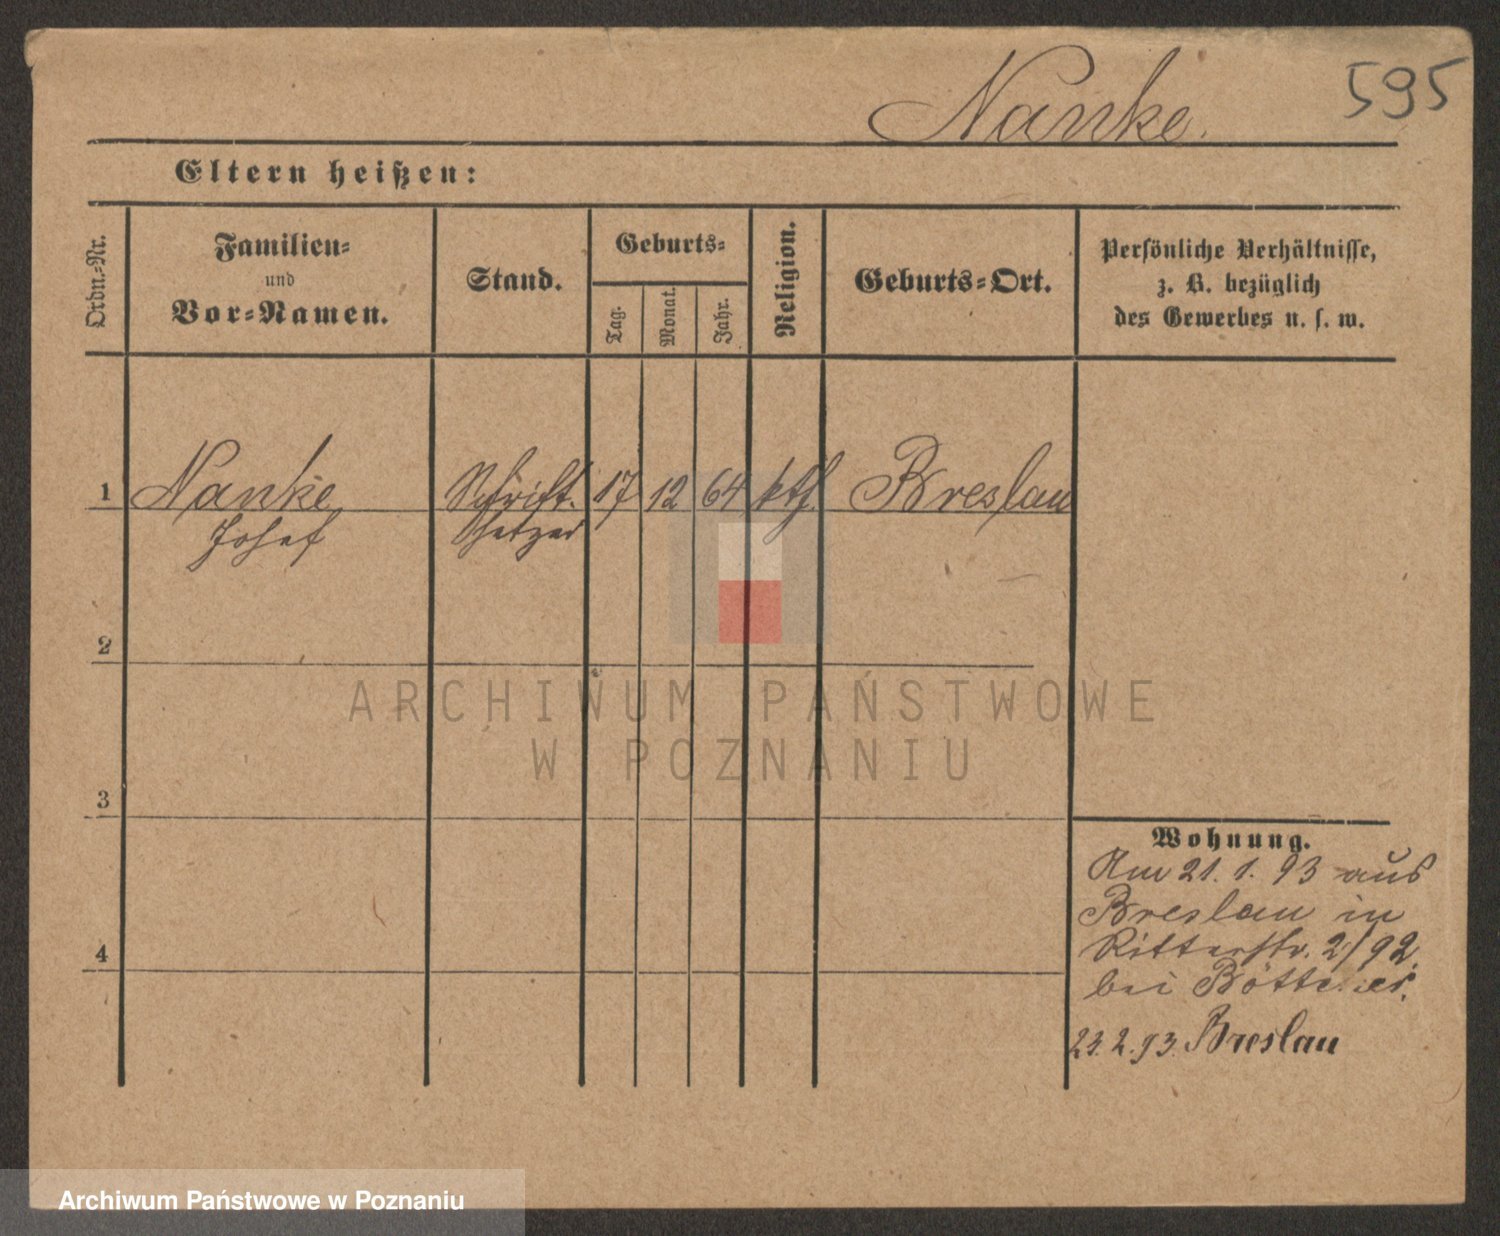 Nanke.
595
Eltern heißen:
Ordn.-Nr.
Familien-
und
Vor-Namen.
Stand.
Geburts-
Tag.
Monat.
Jahr.
Religion.
Geburts-Ort.
Persönliche Verhältnisse,
z. B. bezüglich
des Gewerbes u. s. w.
1
Nanke
Josef
Schrift-
setzer
17
12
64
kth.
Breslau
2
3
4
ARCHIWUM PAŃSTWOWE
W POZNANIU
Wohnung.
Am 21. 1. 93 aus
Breslau in
Ritterstr. 2/92.
bei
23. 2. 93. Breslau
Archiwum Państwowe w Poznaniu